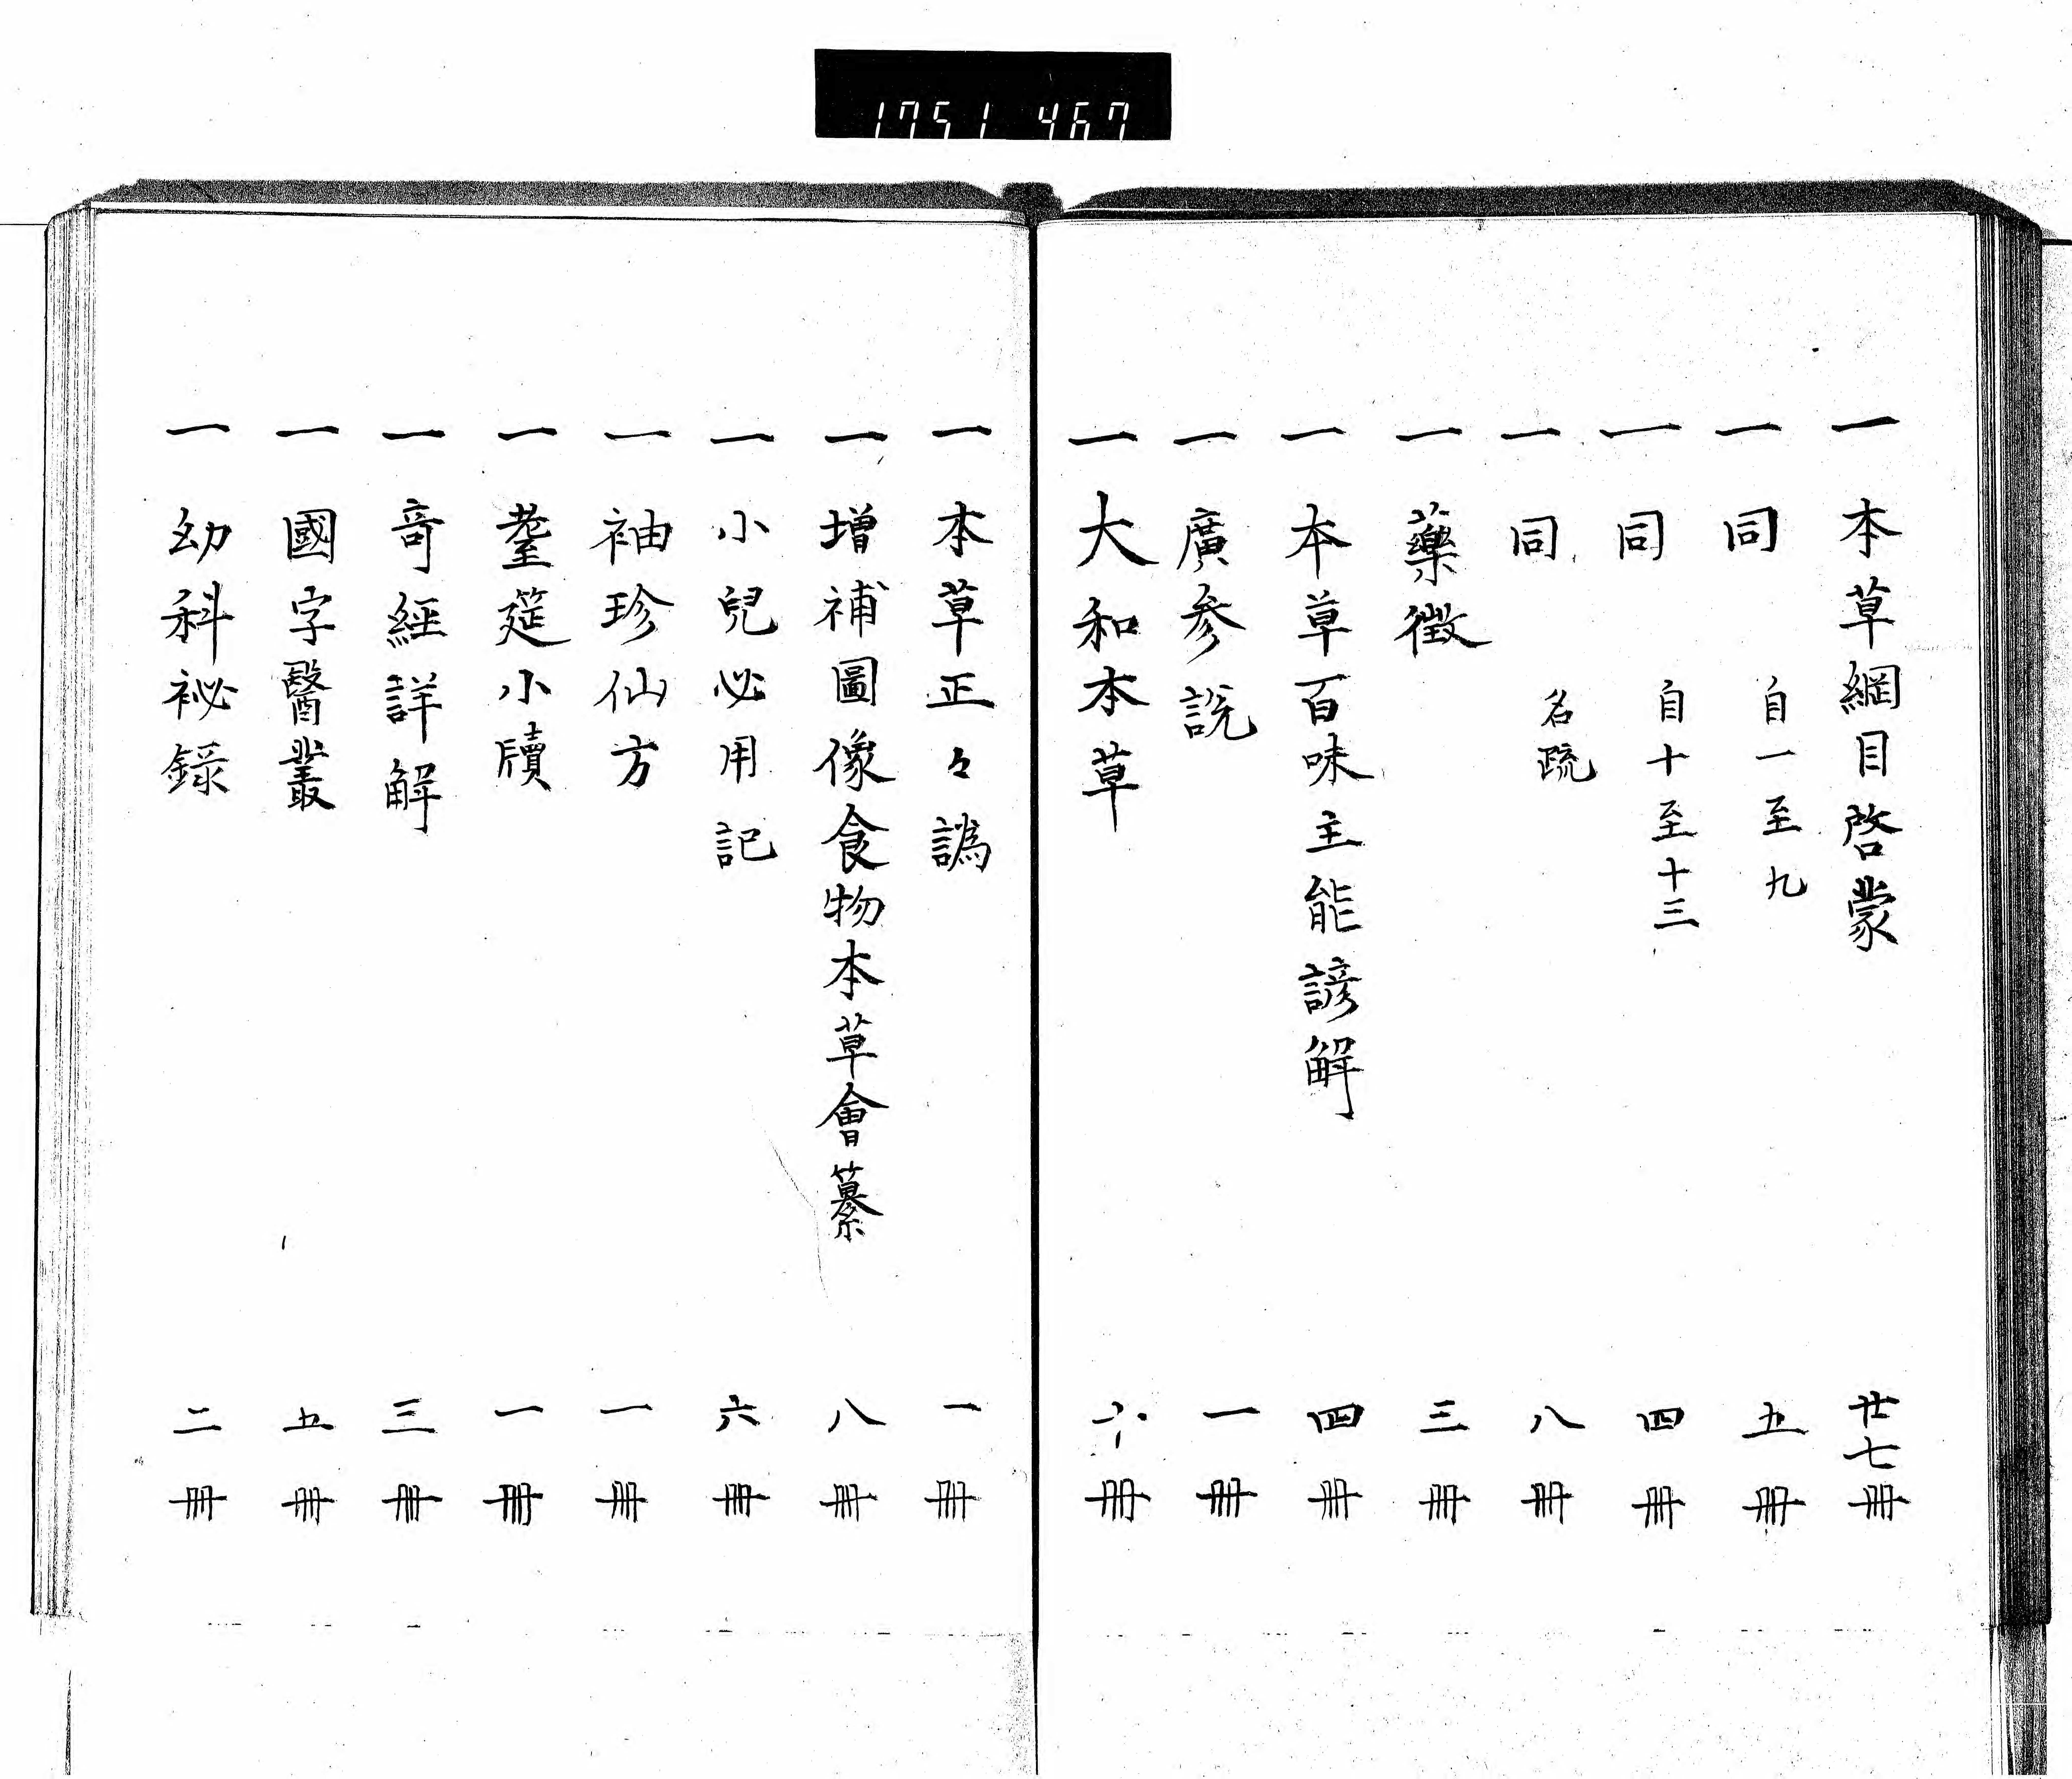 1751 467
一 本草綱目啓蒙 廿七冊
一 同 自一至九 五冊
一 同 自十至十三 四冊
一 同 名疏 八冊
一 藥徴 三冊
一 本草百味主能諺解 四冊
一 廣参説 一冊
一 大和本草 冊
一 本草正々譌 一冊
一 増補圖像食物本草會纂 八冊
一 小兒必用記 六冊
一 袖珍仙方 一冊
一 薹莛小牘 一冊
一 竒經詳解 三冊
一 國字醫叢 五冊
一 幼科祕録 二冊